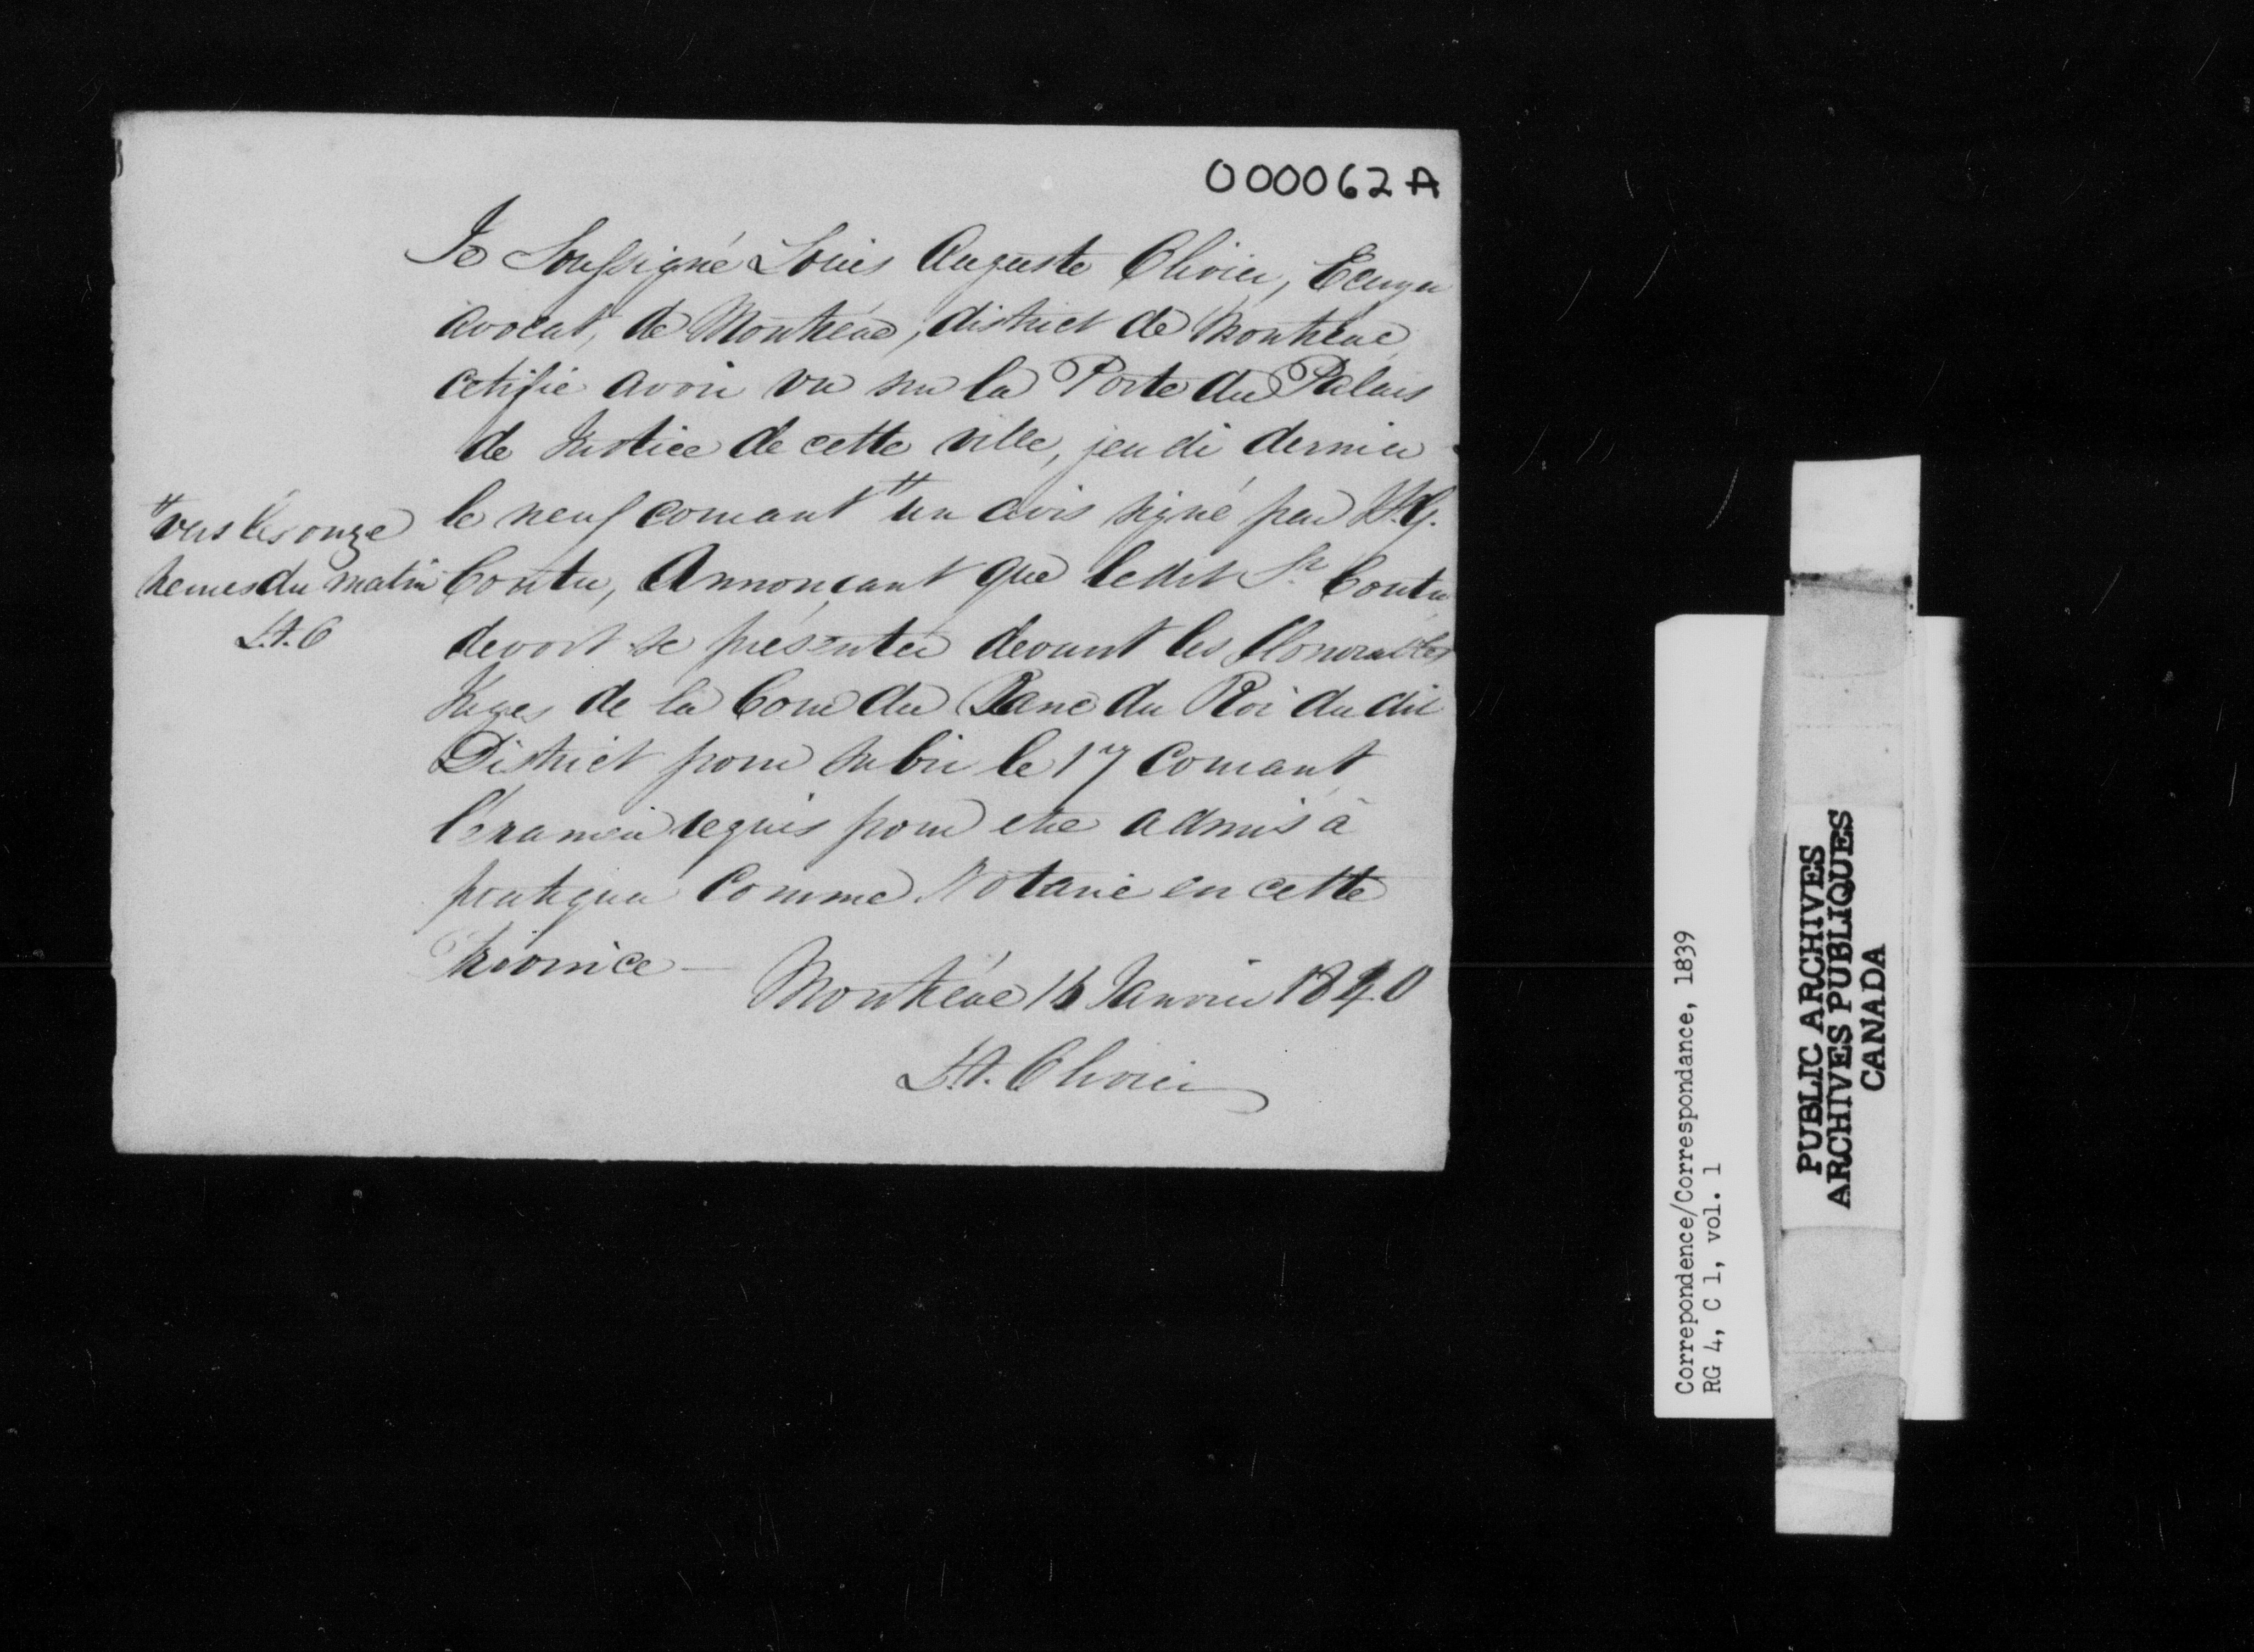 000062A
Je Soussigné Louis Auguste Olivier, Ecuyer
avocat, de Montréal, district de Montréal,
certifie avoir vu sur la Porte du Palais
de Justice de cette ville, jeudi dernier
le neuf courant # un avis signé par
# vers les onze
heures du matin
L.A.O
Coutu, Annonçant que ledit Sr. Coutu
devoit se présenter devant les Honorables
Juges de la Cour du Banc du Roi du dit
District pour subir le 17 Courant
l'examen requis pour etre admis à
pratiquer Comme Notaire en cette
Province —
Montréal 16 Janvier 1840
L.A. Olivier
Correpondence/Correspondance, 1839
RG 4, C 1, vol. 1
PUBLIC ARCHIVES
ARCHIVES PUBLIQUES
CANADA